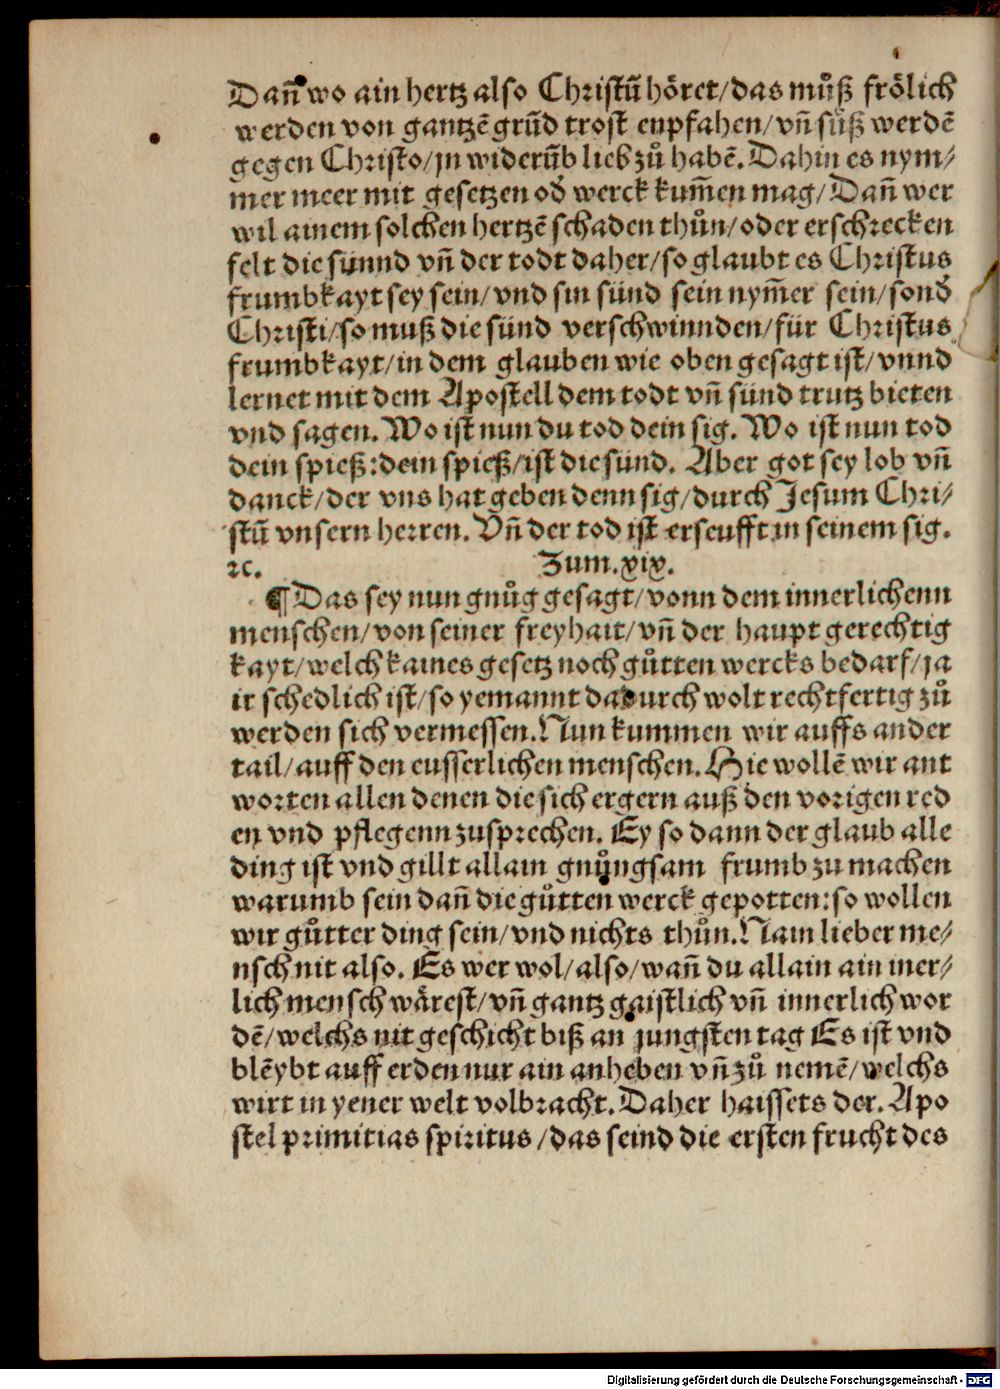 Dañ wo ain hertz also Christũ höret/das můß frölich
werden von gantzẽ grũd trost enpfahen/vñ süß werdẽ
gegen Christo/jn widerũb lieb zů habẽ. Dahin es nym⸗
mer meer mit gesetzen oď werck kum̃en mag/Dañ wer
wil ainem solchen hertzẽ schaden thůn/oder erschrecken
felt die sünnd vñ der todt daher/so glaubt es Christus
frumbkayt sey sein/vnd sin sünd sein nym̃er sein/sonď
Christi/so muß die sünd verschwinnden/für Christus
frumbkayt/in dem glauben wie oben gesagt ist/vnnd
lernet mit dem Apostell dem todt vñ sünd trutz bieten
vnd sagen. Wo ist nun du tod dein sig. Wo ist nun tod
dein spieß:dein spieß/ist die sünd. Aber got sey lob vñ
danck/der vns hat geben denn sig/durch Jesum Chri⸗
stũ vnsern herren. Vñ der tod ist erseufft in seinem sig.
ꝛc. Zum.xix.
¶ Das sey nun gnůg gesagt/vonn dem innerlichenn
menschen/von seiner freyhait/vñ der haupt gerechtig
kayt/welch kaines gesetz noch gůtten wercks bedarf/ja
ir schedlich ist/so yemannt dadurch wolt rechtfertig zů
werden sich vermessen. Nun kummen wir auffs ander
tail/auff den eusserlichen menschen. Hie wollẽ wir ant
worten allen denen die sich ergern auß den vorigen red
en vnd pflegenn zusprechen. Ey so dann der glaub alle
ding ist vnd gillt allain gnůngsam frumb zu machen
warumb sein dañ die gůtten werck gepotten:so wollen
wir gůtter ding sein/vnd nichts thůn. Nain lieber me⸗
nsch nit also. Es wer wol/also/wañ du allain ain iner⸗
lich mensch wärest/vñ gantz gaistlich vñ innerlich wor
dẽ/welchs nit geschicht biß an jungsten tag Es ist vnd
blẽybt auff erden nur ain anheben vñ zů nemẽ/welchs
wirt in yener welt volbracht. Daher haissets der. Apo
stel primitias spiritus/das seind die ersten frucht des
Digitalisierung gefördert durch die Deutsche Forschungsgemeinschaft - DFG